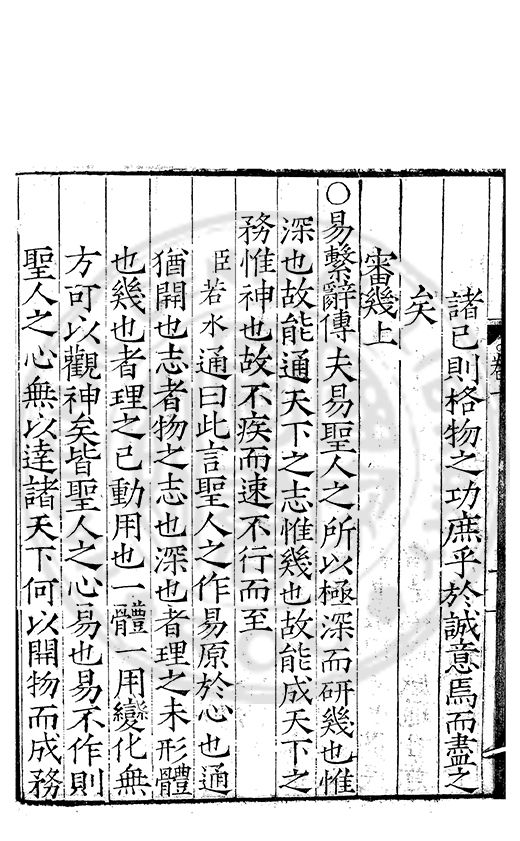 諸己則格物之功庶乎於誠意焉而盡之
矣
審幾上
○易繫辭傳夫易聖人之所以極深而研幾也惟
深也故能通天下之志惟幾也故能成天下之
務惟神也故不疾而速不行而至
臣若水通曰此言聖人之作易原於心也通
猶開也志者物之志也深也者理之未形體
也幾也者理之已動用也一體一用變化無
方可以觀神矣皆聖人之心易也易不作則
聖人之心無以達諸天下何以開物而成務